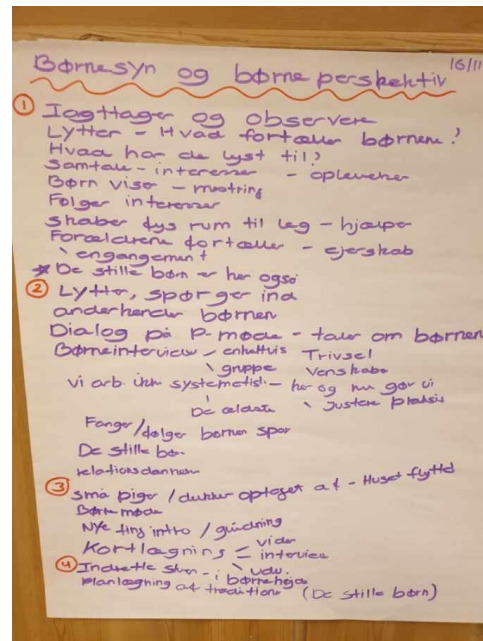 Børnesyn og børneperspektiv 16/11
① Iagttager og observere
Lytter - Hvad fortæller børnene?
Hvad har de lyst til?
Samtale - interesser - oplevelser
Børn viser - mestring
Følger interesser
skaber rum til leg - hjælpe
Forældrene fortæller - ejerskab
engangement
* De stille børn er her også
② Lytter, spørger ind
anderkender børnen
Dialog på P-møde - taler om børnen
Børneinterview - enkeltvis Trivsel
gruppe Venskabe
vi arb. ikke systematisk - her og nu gør vi
De ældste Justere praksis
Fanger/følger børnen spor
De stille børn
relationsdannen
③ små piger / dukker optaget af - Huset flyttet
Børnemøde
Nye ting intro / guidning
Kortlægning = video
interview
④ Indrette - i børnehøjde
Planlægning af traditione (De stille børn)